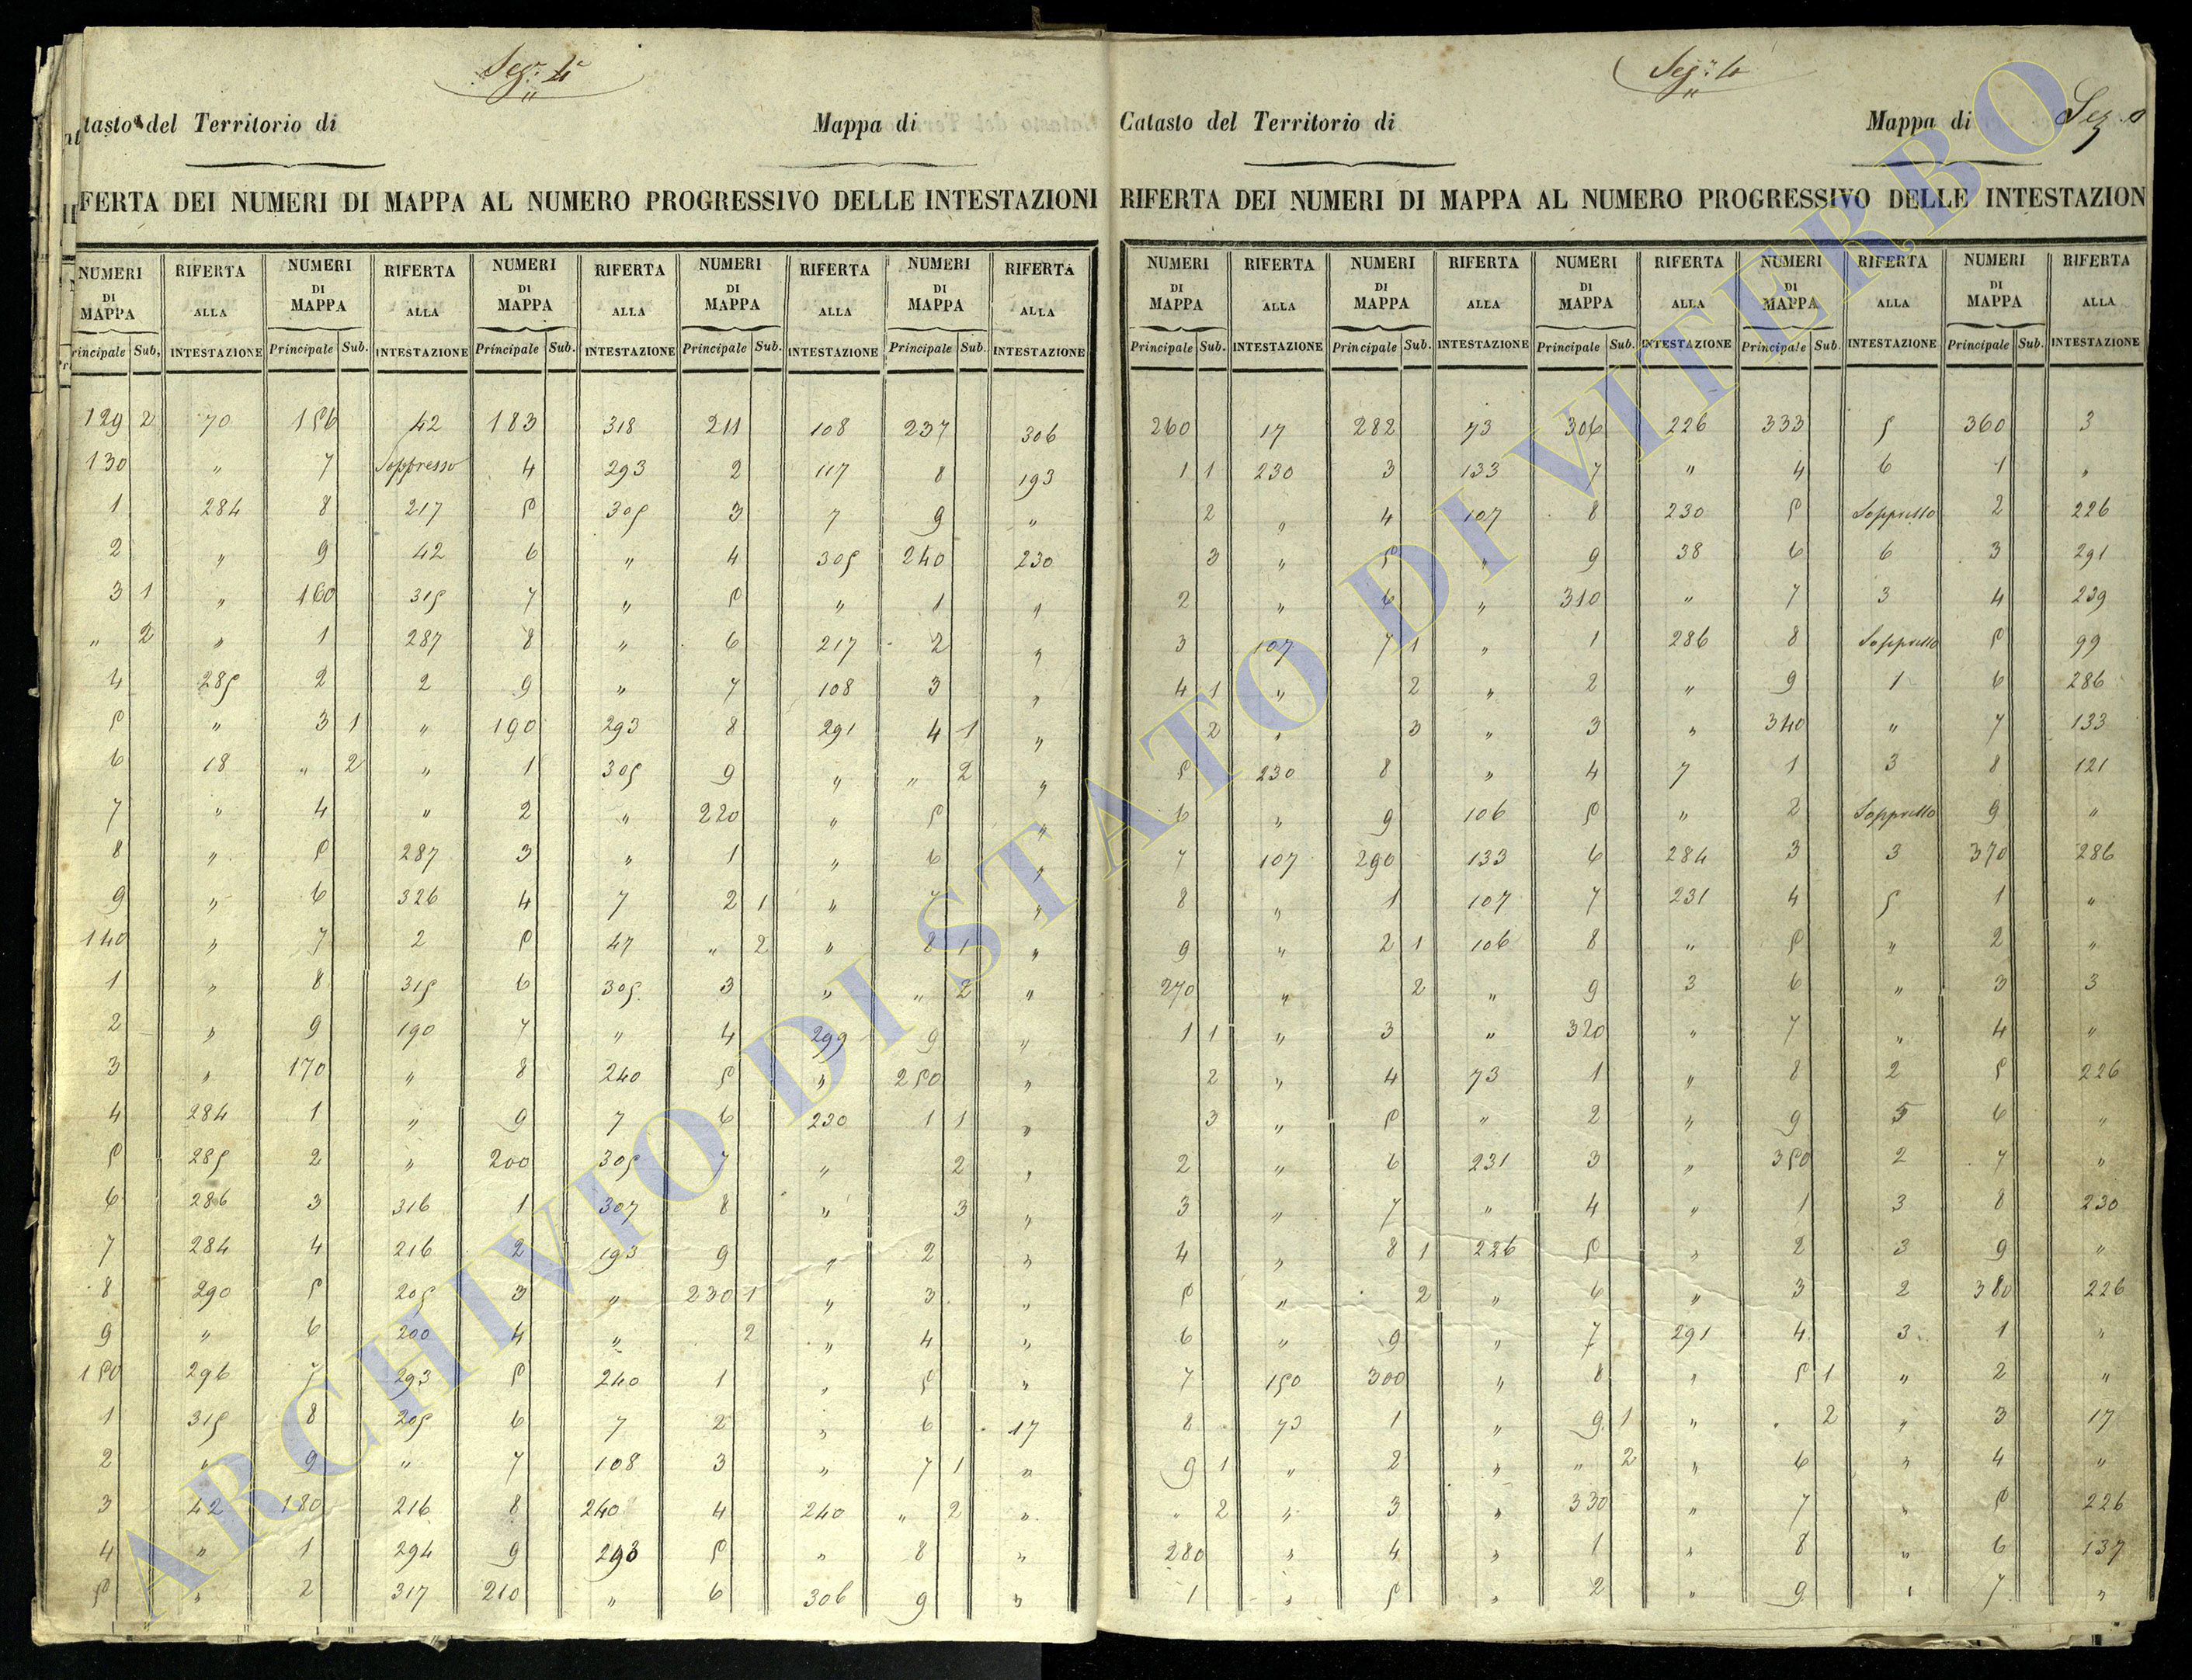 Segᵉ 4ᵃ
tasto del Territorio di Mappa di
FERTA DEI NUMERI DI MAPPA AL NUMERO PROGRESSIVO DELLE INTESTAZIONI
NUMERI DI MAPPA RIFERTA ALLA NUMERI DI MAPPA RIFERTA ALLA NUMERI DI MAPPA RIFERTA ALLA NUMERI DI MAPPA RIFERTA ALLA NUMERI DI MAPPA RIFERTA ALLA
rincipale Sub, INTESTAZIONE Principale Sub. INTESTAZIONE Principale Sub. INTESTAZIONE Principale Sub. INTESTAZIONE Principale Sub. INTESTAZIONE
129 2 70 156 42 183 318 211 108 237 306
130 " 7 Soppresso 4 293 2 117 8 193
1 284 8 217 5 305 3 7 9 "
2 " 9 42 6 " 4 305 240 230
3 1 " 160 315 7 " 5 " 1 "
" 2 " 1 287 8 " 6 217 2 "
4 285 2 2 9 " 7 108 3 "
5 " 3 1 " 190 293 8 291 4 1 "
6 18 " 2 " 1 305 9 " " 2 "
7 " 4 " 2 " 220 " 5 "
8 " 5 287 3 " 1 " 6 "
9 " 6 326 4 7 2 1 " 7 "
140 " 7 2 5 47 " 2 " 8 1 "
1 " 8 315 6 305 3 " " 2 "
2 " 9 190 7 " 4 299 9 "
3 " 170 " 8 240 5 " 250 "
4 284 1 " 9 7 6 230 1 1 "
5 285 2 " 200 305 7 " 2 "
6 286 3 316 1 307 8 " 3 "
7 284 4 216 2 193 9 " 2 "
8 290 5 205 3 " 230 1 " 3 "
9 " 6 200 4 " 2 " 4 "
150 296 7 293 5 240 1 " 5 "
1 315 8 205 6 7 2 " 6 17
2 " 9 " 7 108 3 " 7 1 "
3 42 180 216 8 240 4 240 " 2 "
4 " 1 294 9 293 5 " 8 "
5 " 2 317 210 " 6 306 9 "
Segᵉ 4
Catasto del Territorio di Mappa di Sez.
RIFERTA DEI NUMERI DI MAPPA AL NUMERO PROGRESSIVO DELLE INTESTAZION
NUMERI DI MAPPA RIFERTA ALLA NUMERI DI MAPPA RIFERTA ALLA NUMERI DI MAPPA RIFERTA ALLA NUMERI DI MAPPA RIFERTA ALLA NUMERI DI MAPPA RIFERTA ALLA
Principale Sub. INTESTAZIONE Principale Sub. INTESTAZIONE Principale Sub. INTESTAZIONE Principale Sub. INTESTAZIONE Principale Sub. INTESTAZIONE
260 17 282 73 306 226 333 5 360 3
1 1 230 3 133 7 " 4 6 1 "
2 " 4 107 8 230 5 Soppresso 2 226
3 " 5 " 9 38 6 6 3 291
2 " 6 " 310 " 7 3 4 239
3 107 7 1 " 1 286 8 Soppresso 5 99
4 1 " 2 " 2 " 9 1 6 286
2 " 3 " 3 " 340 " 7 133
5 230 8 " 4 7 1 3 8 121
6 " 9 106 5 " 2 Soppresso 9 "
7 107 290 133 6 284 3 3 370 286
8 " 1 107 7 231 4 5 1 "
9 " 2 1 106 8 " 5 " 2 "
270 " 2 " 9 3 6 " 3 3
1 1 " 3 " 320 " 7 " 4 "
2 " 4 73 1 " 8 2 5 226
3 " 5 " 2 " 9 5 6 "
2 " 6 231 3 " 350 2 7 "
3 " 7 " 4 " 1 3 8 230
4 " 8 1 226 5 " 2 3 9 "
5 " 2 " 6 " 3 2 380 226
6 " 9 " 7 291 4 3 1 "
7 150 300 " 8 " 5 1 " 2 "
8 73 1 " 9 1 " 2 " 3 17
9 1 " 2 " " 2 " 6 " 4 "
" 2 " 3 " 330 " 7 " 5 226
280 " 4 " 1 " 8 " 6 137
1 " 5 " 2 " 9 " 7 "
ARCHIVIO DI STATO DI VITERBO